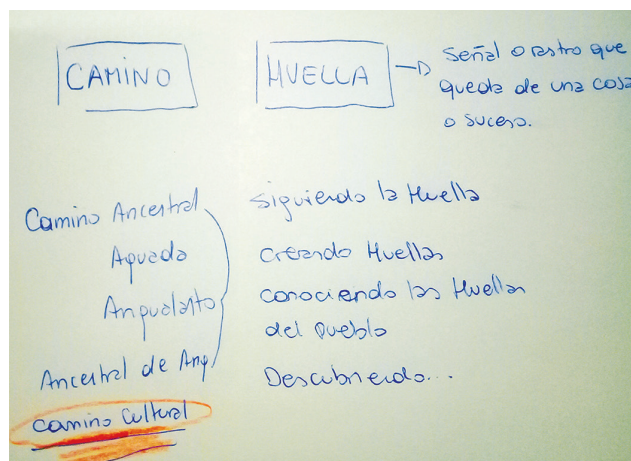 CAMINO
HUELLA
Señal o rastro que
queda de una cosa
o suceso.
Camino Ancestral
Aguada
Angualasto
Ancestral de Ang
Camino Cultural
Siguiendo la Huella
Creando Huellas
Conociendo las Huellas
del Pueblo
Descubriendo...